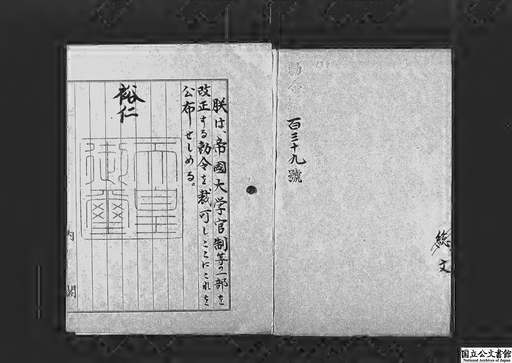 百三十九號
総文
朕は、帝國大学官制等の一部を
改正する勅令を裁可しここにこれを
公布せしめる。
裕仁
天皇
御璽
内閣
国立公文書館
National Archives of Japan